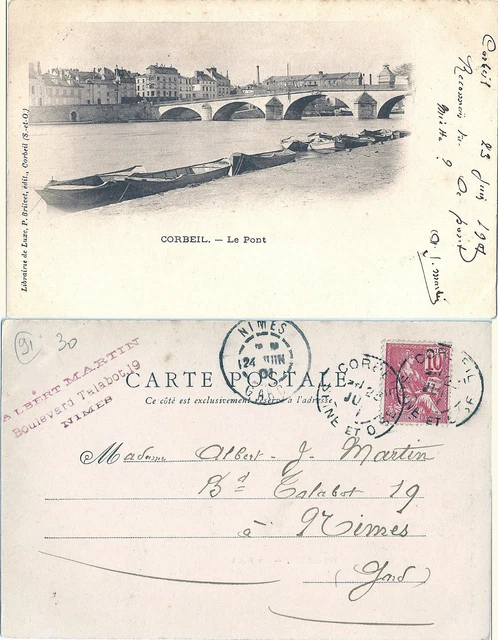 Librairie de Luxe, P. Brilvet, édit., Corbeil (S.-et-O.)
CORBEIL. — Le Pont
Corbeil 23 Juin 1901
91 30
ALBERT MARTIN
Boulevard Talabot 19
NIMES
NIMES
24 JUIN
01
GARD
CORBEIL
SEINE ET OISE
CORBEIL
SEINE ET OISE
10
CARTE POSTALE
Ce côté est exclusivement réservé à l'adresse
Madame Albert-J. Martin
Bd Talabot 19
à Nimes
(Gard)